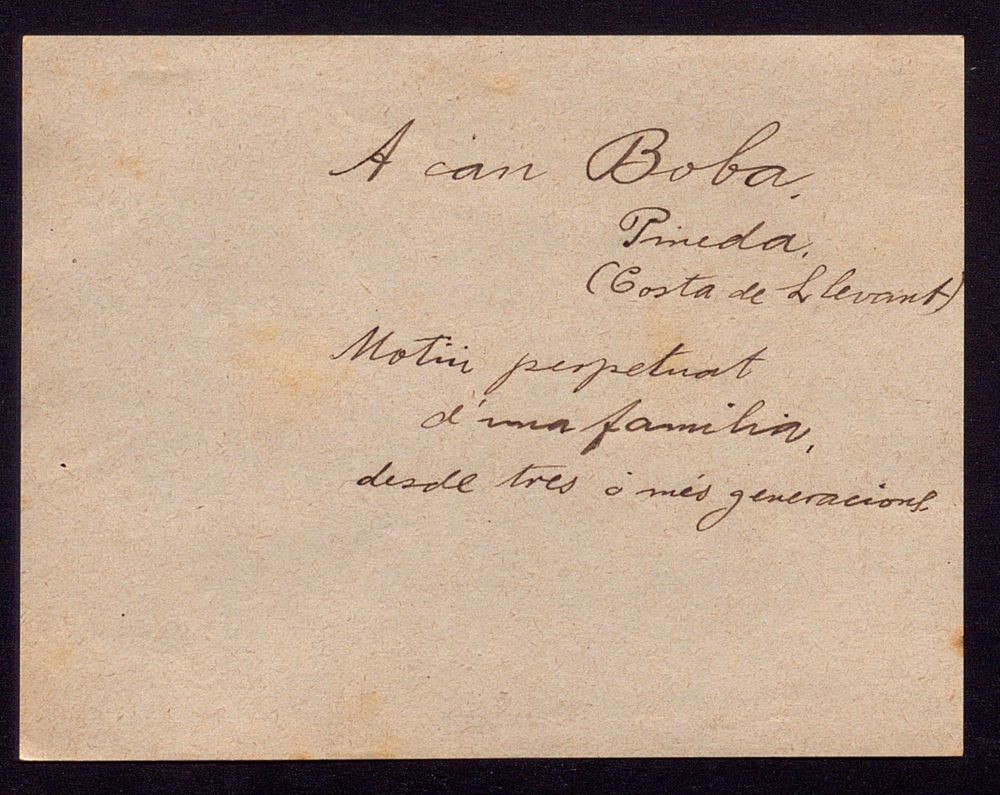 A can Boba,
Pineda,
(Costa de Llevant)
Motiu perpetuat
d'una familia,
desde tres ó més generacions